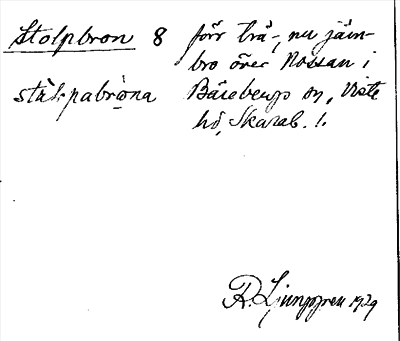 Stolpbron 8 förr trä-, nu järn-
bro över Nossan i
stålpabròna Bärebergs sn, Viste
hd, Skarab. l.
R. Ljunggren 1929